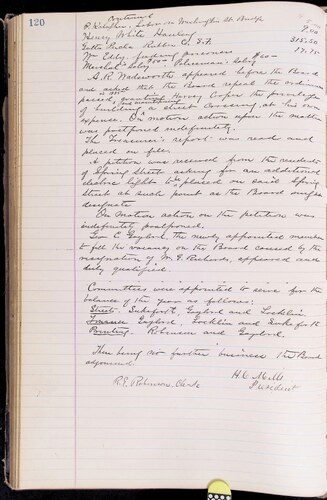 120
Continued
Labor on Washington St. Bridge
Henry White Hauling 9.00
Gutta Percha Rubber Co. F.F. 315.50
Mr. Eddy, feeding prisoners 17.70
Marshal's Salary $50— Policeman's Salary $50—
A.R. Wadsworth appeared before the Board
and asked that the Board repeal the ordinance
passed granting Henry Lowe the privilege
of building and maintaining a street crossing, at his own
expense. On motion action upon the matter
was postponed indefinitely.
The Treasurer's report was read and
placed on file.
A petition was received from the residents
of Spring Street asking for an additional
electric light to be placed on said Spring
Street at such point as the Board might
designate
On motion action on the petition was
indefinitely postponed.
C. Gaylord, the newly appointed member
to fill the vacancy on the Board caused by the
resignation of W. F. Richards, appeared and
duly qualified.
Committees were appointed to serve for the
balance of the year as follows:
Street: Lukeforth, Gaylord and Locklin.
Finance: Gaylord, Locklin and Lukeforth
Printing: Robinson and Gaylord.
There being no further business the Board
adjourned.
R.E. Robinson, Clerk
President